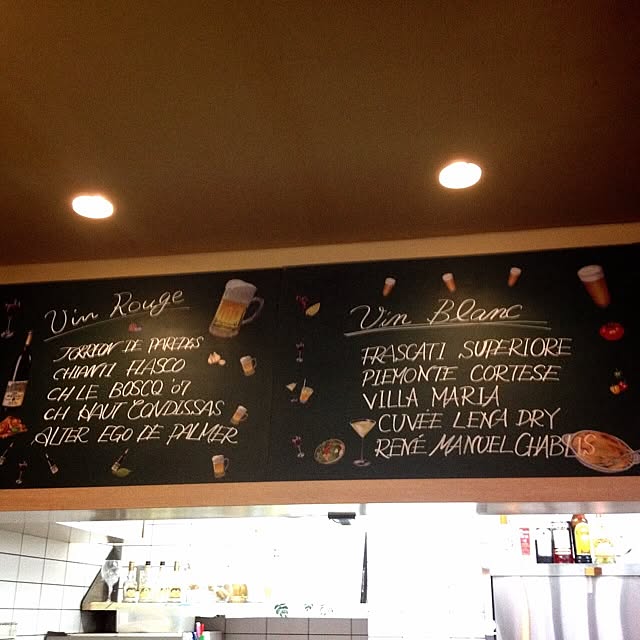 Vin Rouge
TORREON DE PAREDES
CHIANTI FIASCO
CH LE BOSCQ '07
CH HAUT CONDISSAS
ALTER EGO DE PALMER
Vin Blanc
FRASCATI SUPERIORE
PIEMONTE CORTESE
VILLA MARIA
CUVÉE LENA DRY
RENÉ MANUEL CHABLIS